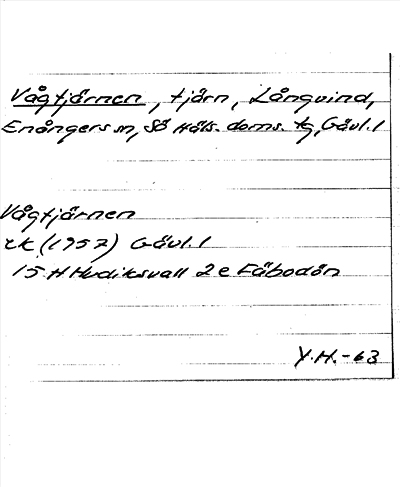 Vågtjärnen, tjärn, Långvind,
Enångers sn, Sö Häls. doms. tg, Gävl. l
Vågtjärnen
rk (1957) Gävl. l
15 H Hudiksvall 2 e Fäbodön
Y.H.-63